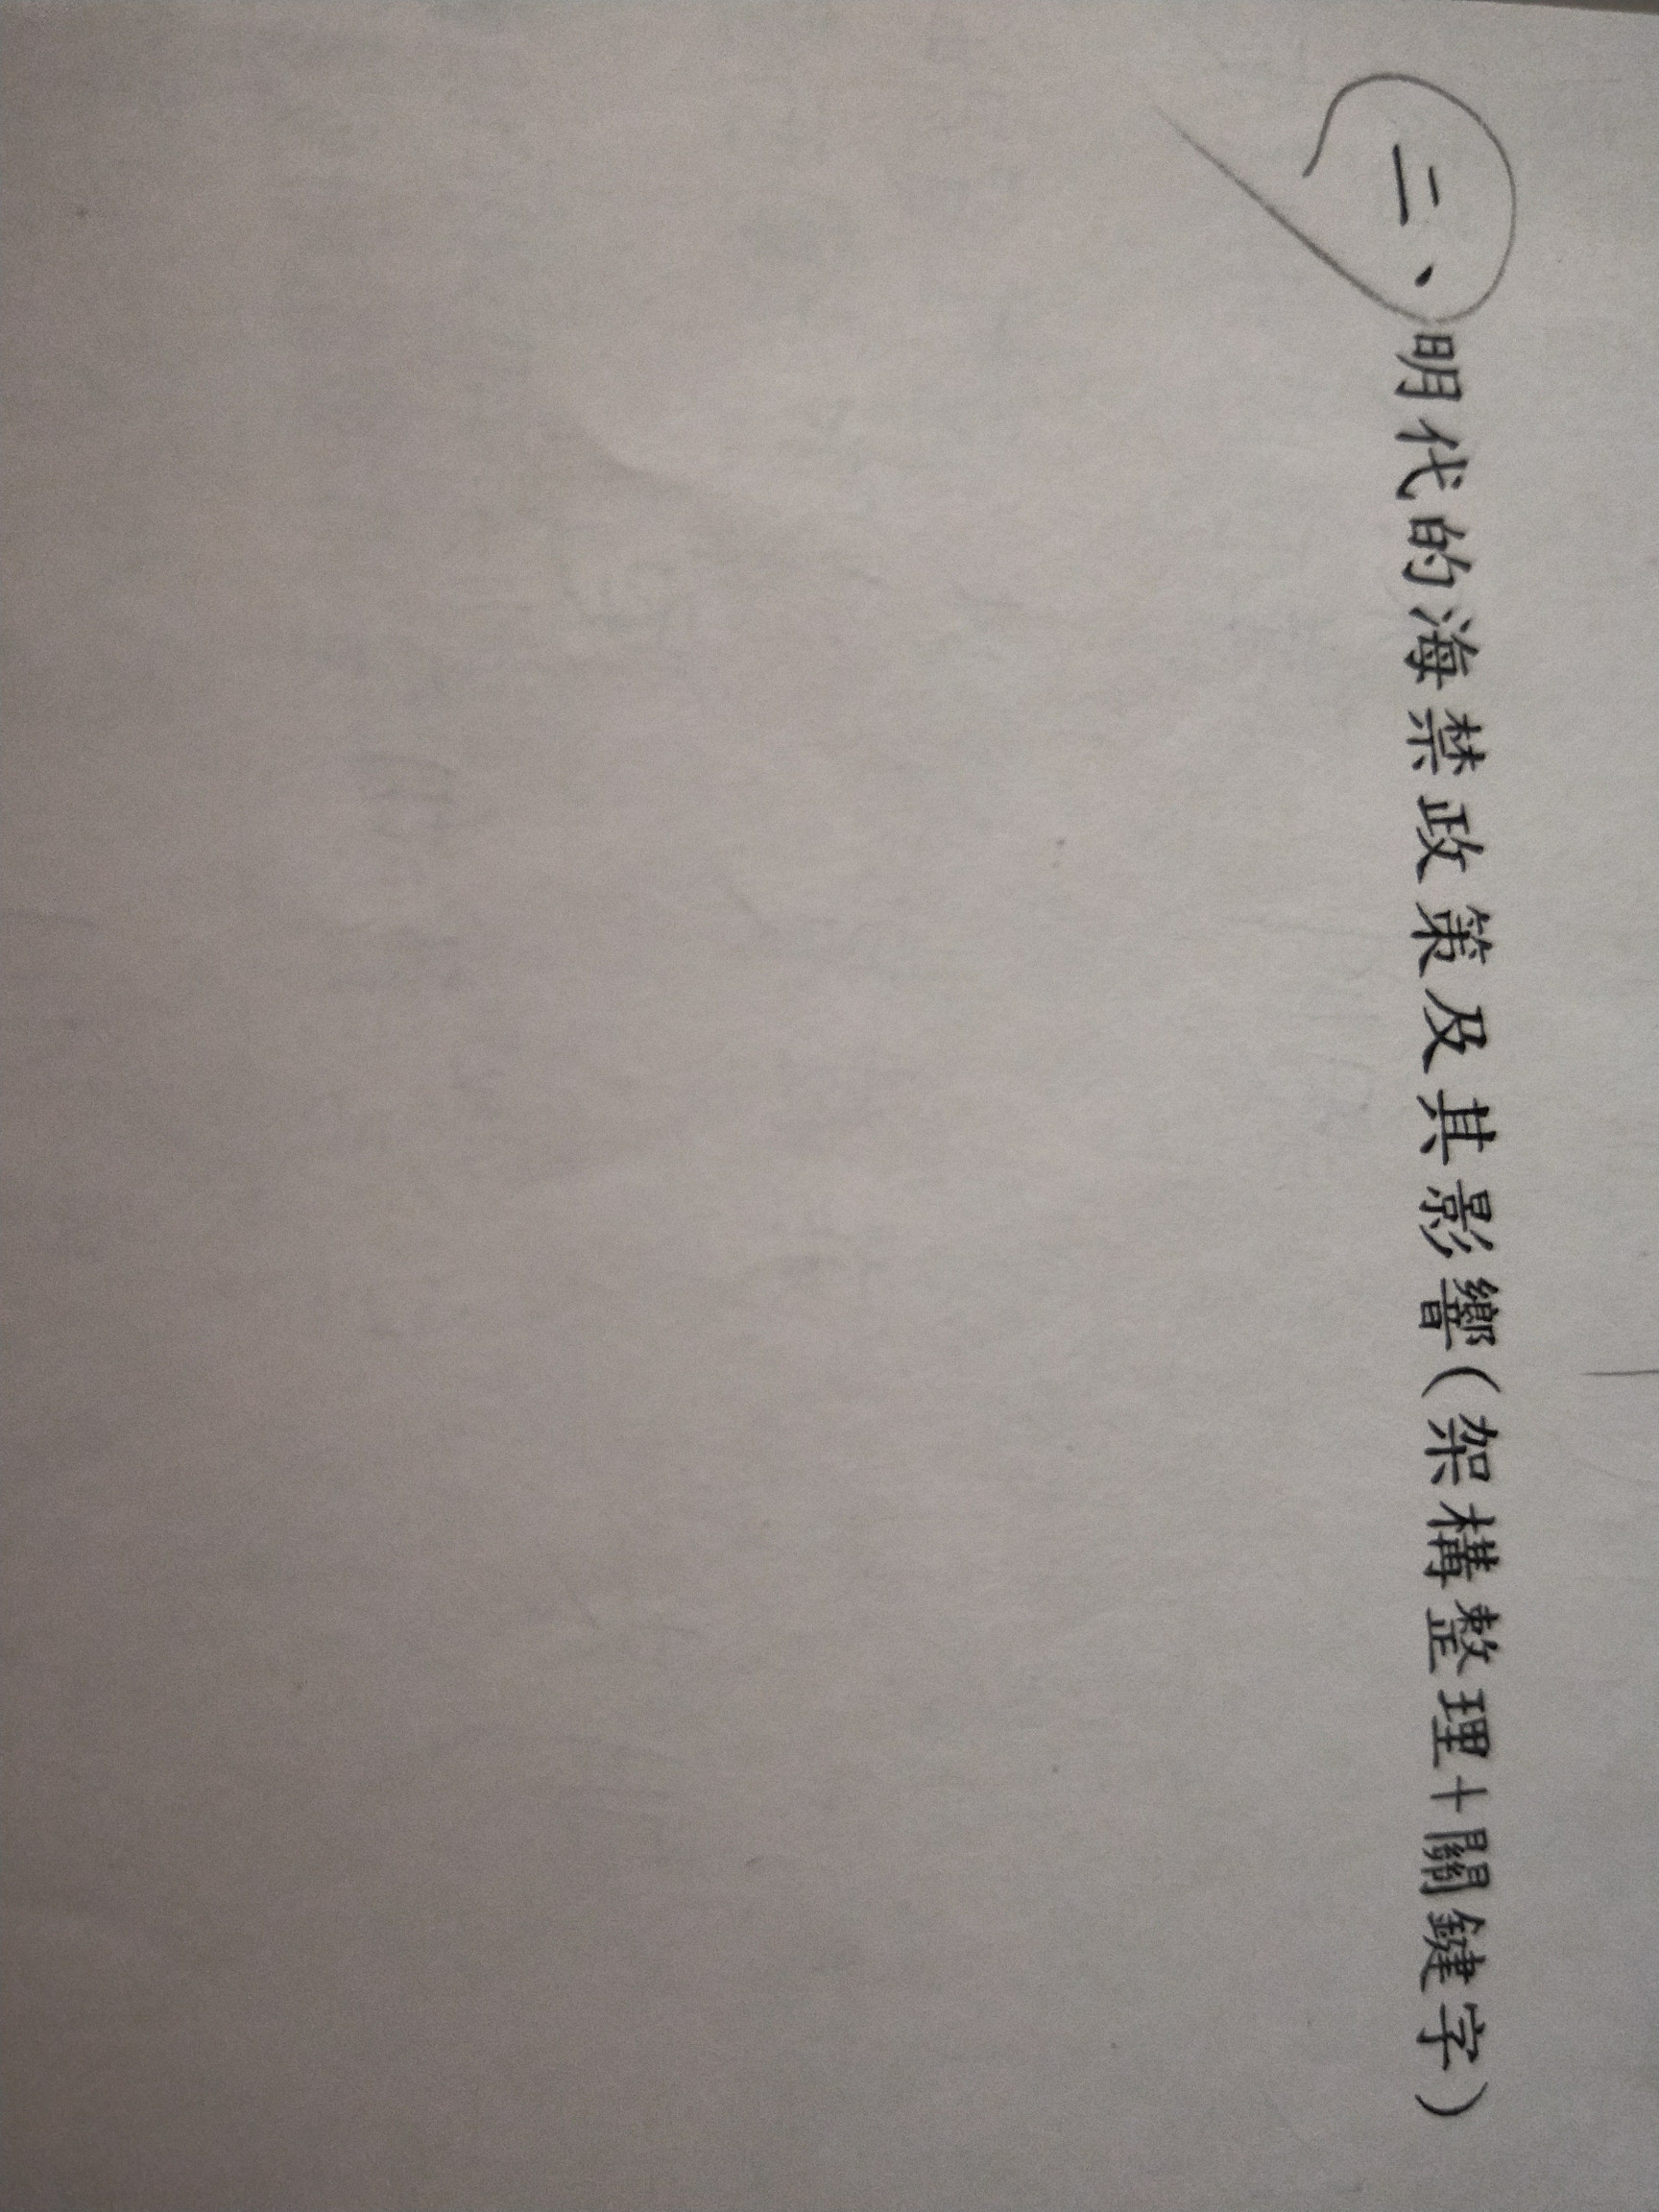 二、明代的海禁政策及其影響(架構整理+關鍵字)